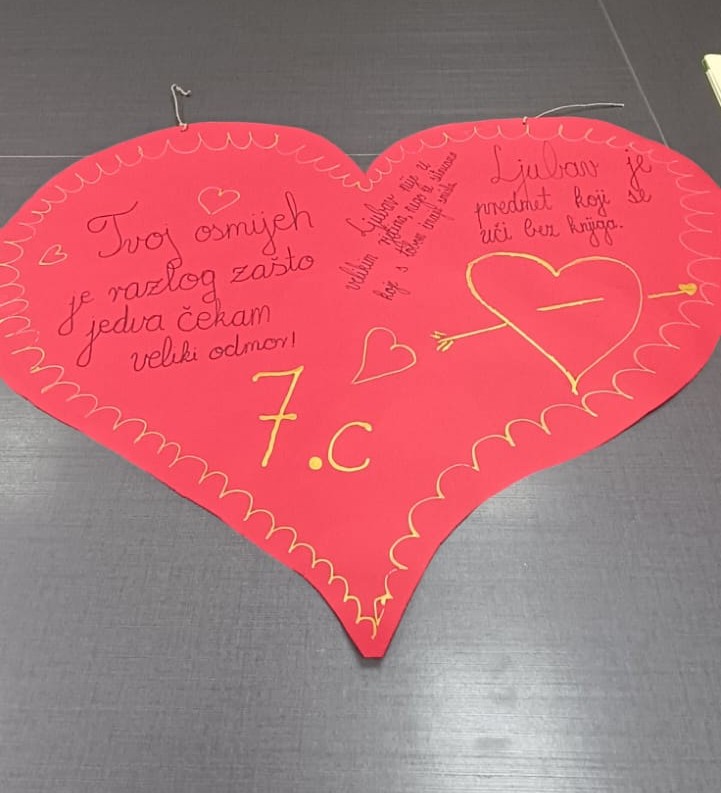 Tvoj osmijeh
je razlog zašto
jedva čekam
veliki odmor!
Ljubav nije u
velikim riječima, nego u sitnicama
koje s tobom imaju smisla
Ljubav je
predmet koji se
uči bez knjiga.
7.c